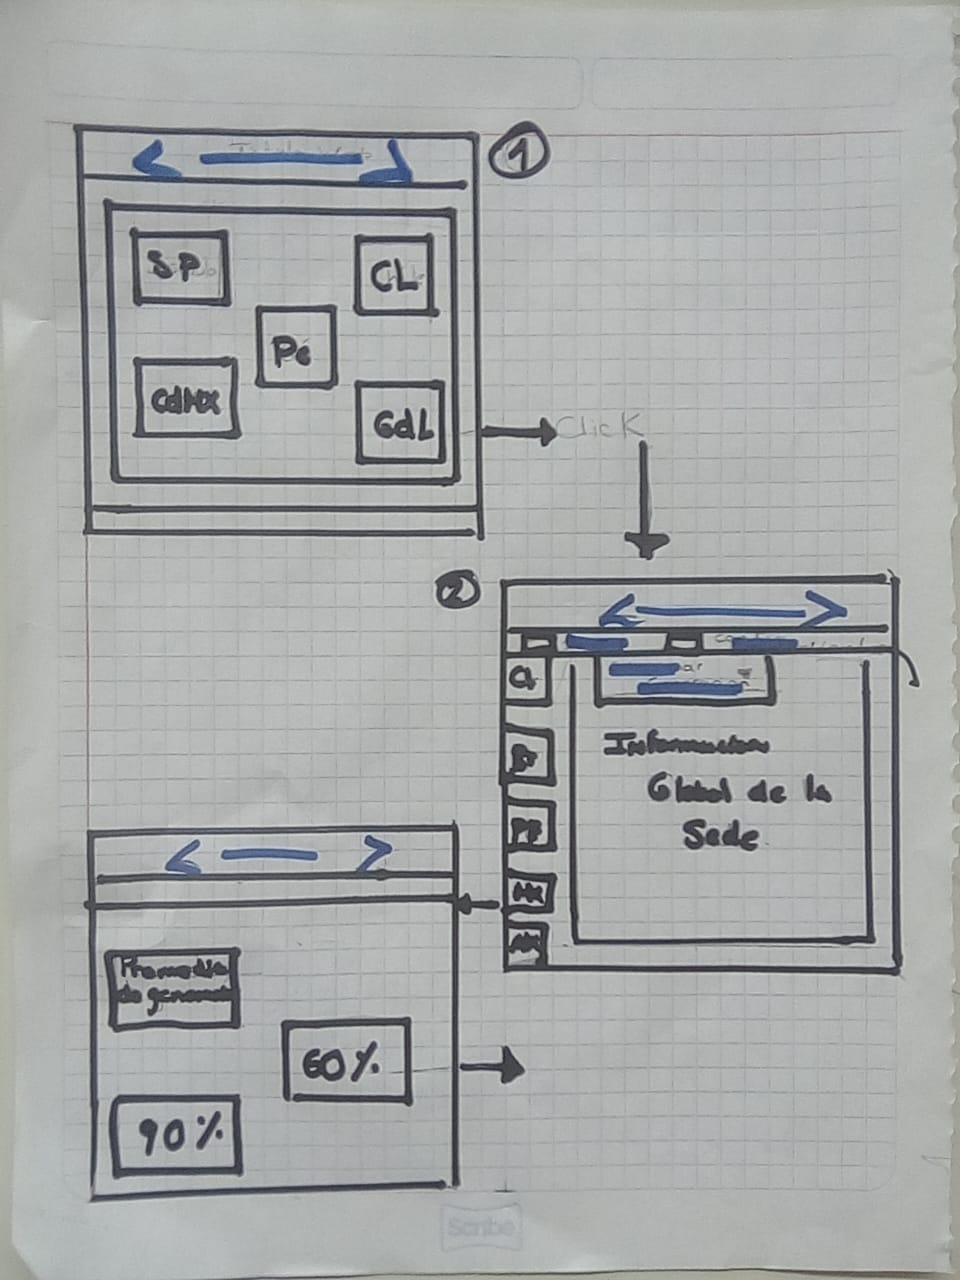 1
SP
CL
Pe
CdMX
GdL
Click
2
CL
Informacion
Global de la
Sede
Promedio
de generac
60%
90%
Scribe